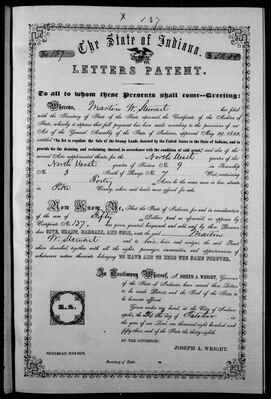 X 137
No. 137
The State of Indiana,
LETTERS PATENT.
To all to whom these Presents shall come—Greeting:
Whereas, Martin W. Stewart has filed
with the Secretary of State of the State aforesaid the Certificate of the Auditor of
State, whereby it appears that full payment has been made according to the provisions of an
Act of the General Assembly of the State of Indiana, approved May 29, 1852,
entitled "An Act to regulate the Sale of the Swamp Lands donated by the United States to the State of Indiana, and to
provide for the draining and reclaiming thereof in accordance with the condition of said grant," and also of the
several Acts supplemental thereto for the North West quarter of the
North West quarter of Section No. 9 in Township
No. 3 of Range No. 7 West, containing
Forty Acres be the same more or less situate
in Pike County, where said lands were offered for sale.
Now Know Ye, That the State of Indiana for and in consideration
of the sum of Fifty Dollars paid as aforesaid, as appears by
Certificate No. 137, has given, granted, bargained and sold and by these Presents
does GIVE, GRANT, BARGAIN, AND SELL, unto the said Martin
W. Stewart and to heirs, here and assigns, the said Tract
above described together with all the rights, passages, immunities, and appurtenances of
whatsoever nature thereunto belonging TO HAVE AND TO HOLD THE SAME FOREVER.
In Testimony Whereof, I, JOSEPH A. WRIGHT, Governor
of the State of Indiana have caused these Letters
to be made Patent and the Seal of the State to
be hereunto affixed.
Given under my hand, at the City of Indian-
apolis, the day of October in
the year of our Lord, one thousand eight hundred and
fifty three, and of the State the thirty-eighth.
BY THE GOVERNOR:
JOSEPH A. WRIGHT.
L.S.
NEHEMIAH HAYDEN,
Secretary of State.